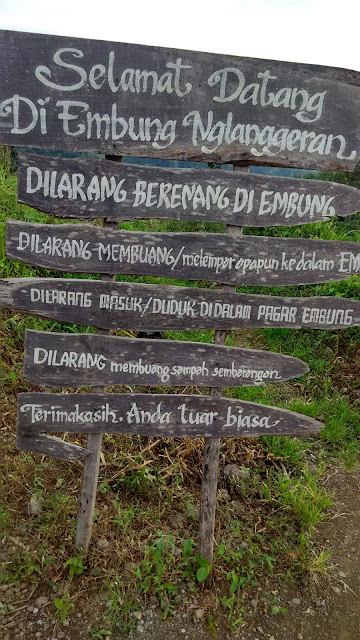 Selamat Datang
Di Embung Nglanggeran
DILARANG BERENANG DI EMBUNG
DILARANG MEMBUANG/melempar apapun ke dalam EM
DILARANG MASUK/DUDUK DI DALAM PAGAR EMBUNG
DILARANG membuang sampah sembarangan
Terimakasih, Anda luar biasa